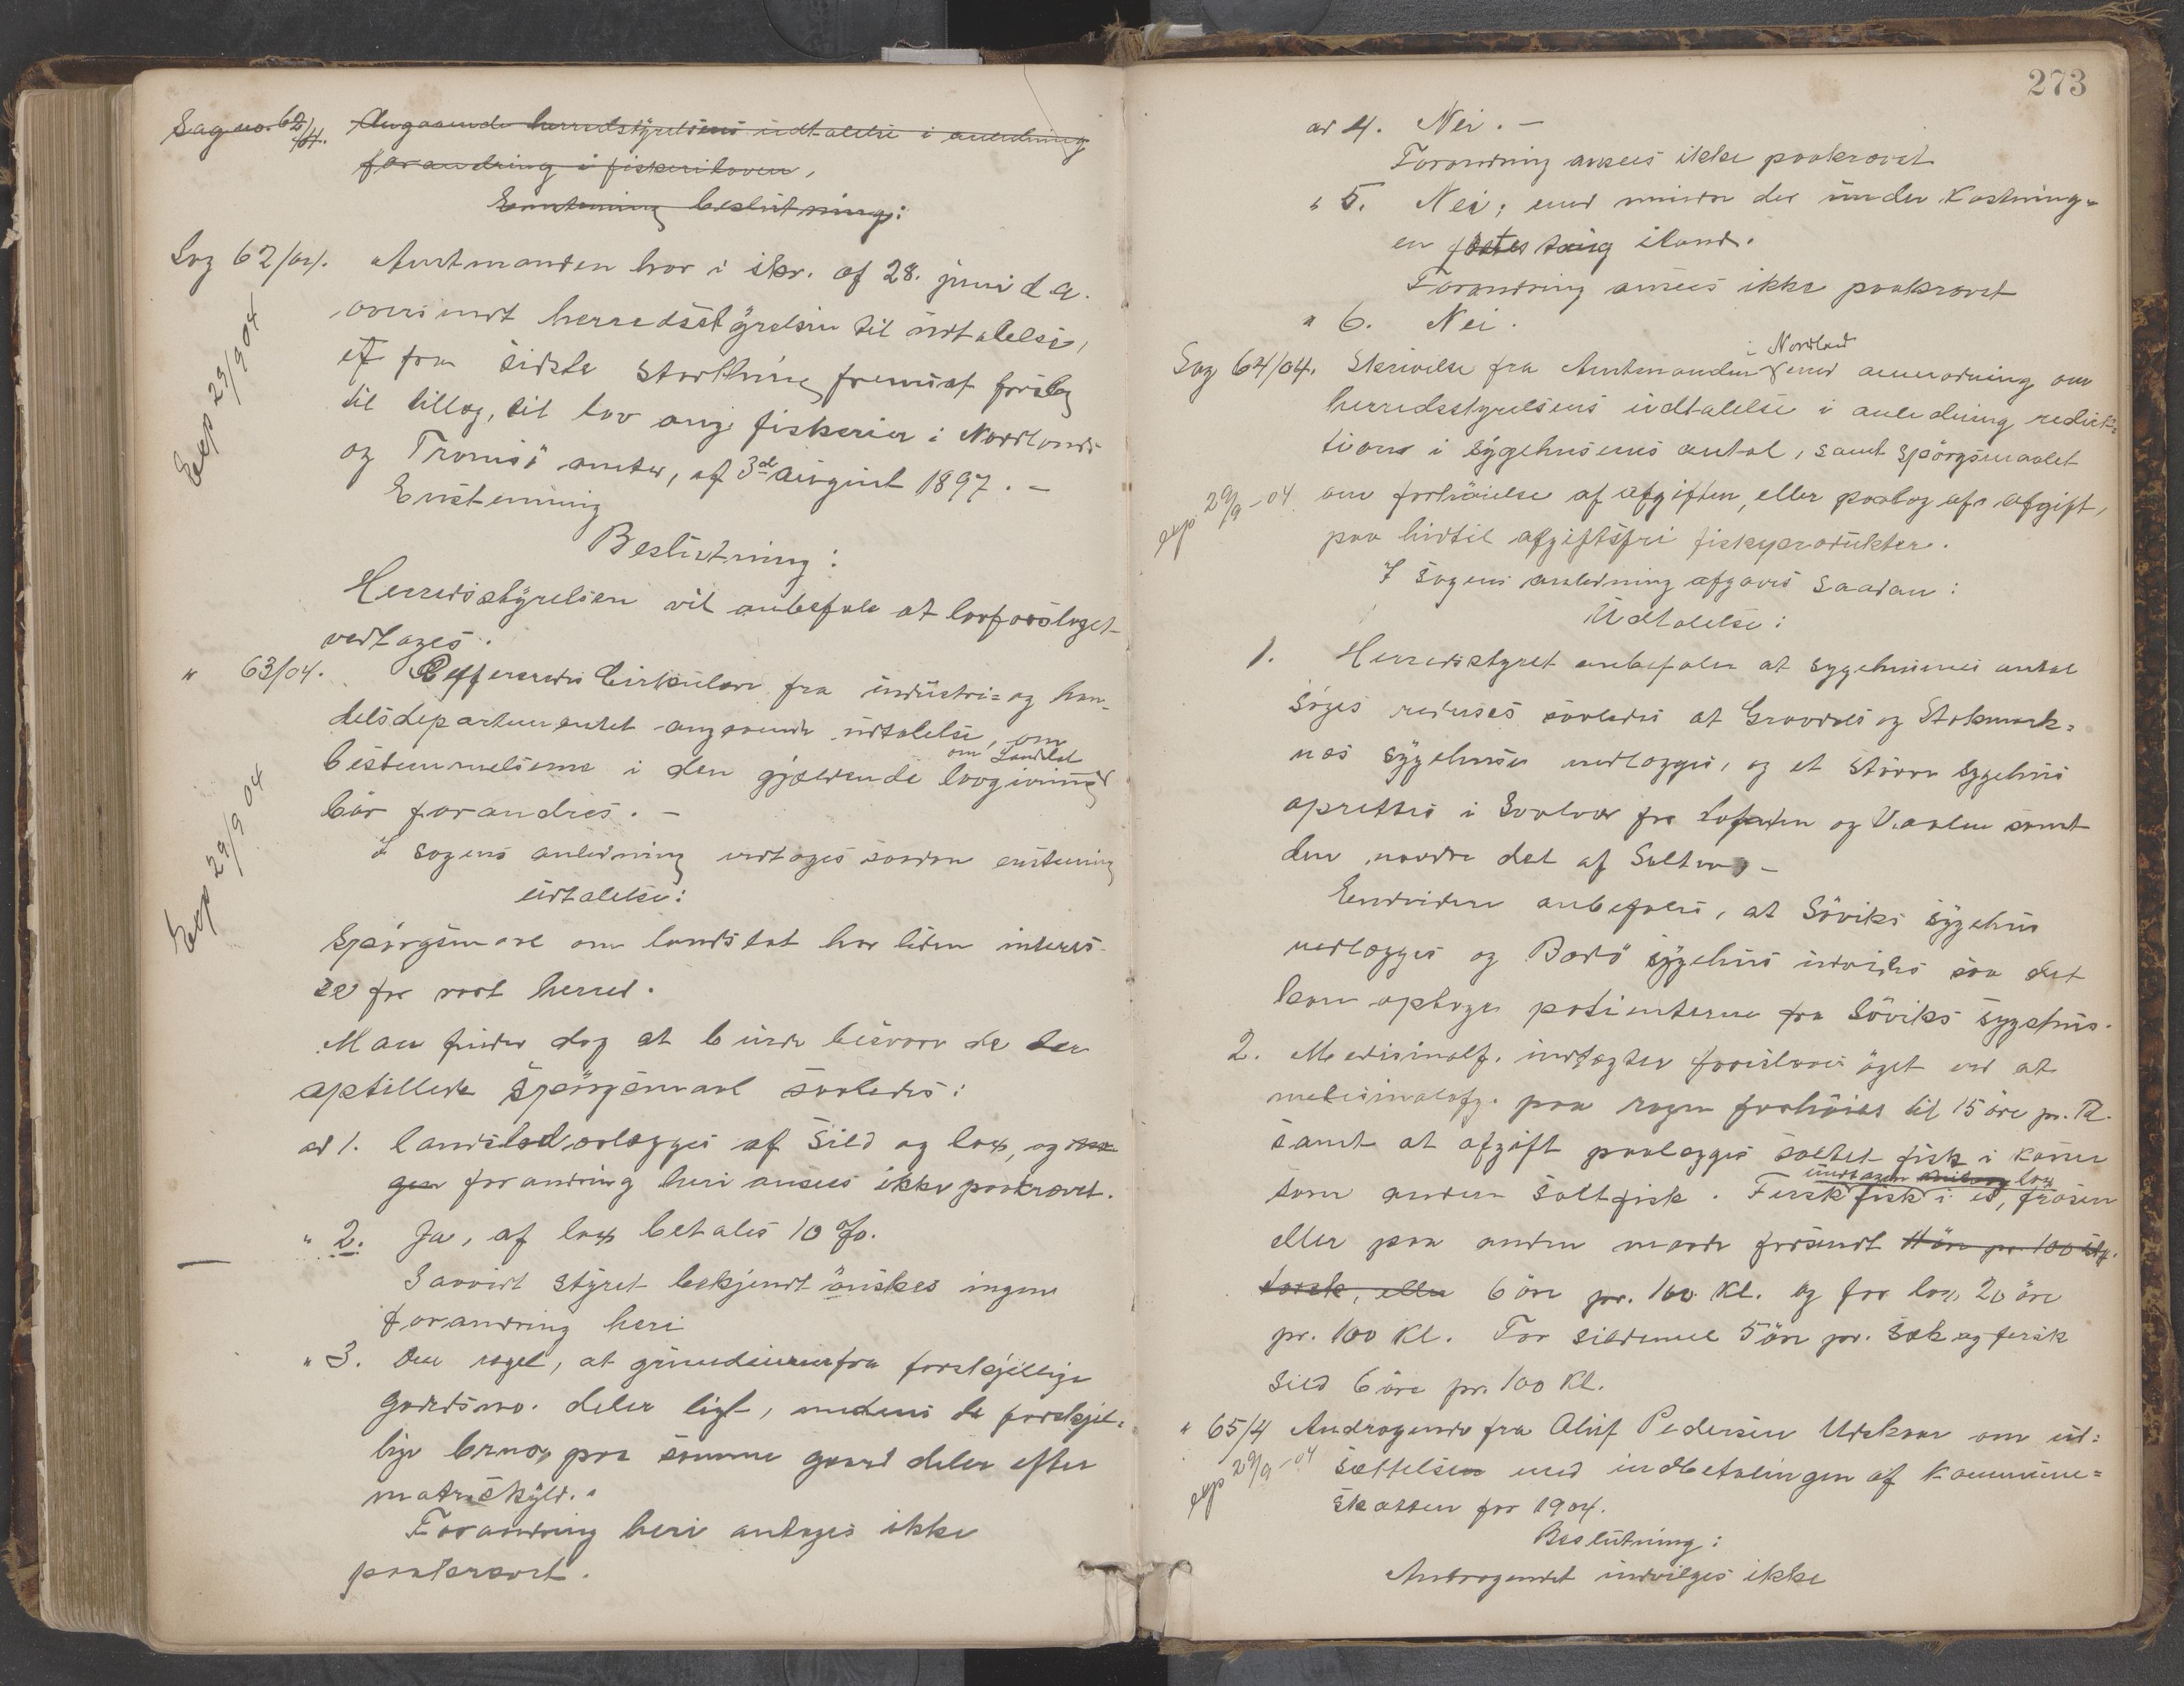 Sag no. 62/04. Angaaende herredstyrelsens udtalelse i anledning
forandring i fiskeriloven,
Enstemmig beslutning:
Sag 62/04. Amtmanden har i skr. af 28. juni d. a.
oversendt herredsstyrelsen til udtalelse,
et fra sidste storthing fremsat forslag
til tillæg, til lov ang. fiskerier i Nordlands
og Tromsö amter, af 3d august 1897. -
Exp 29/9 04
Enstemmig
Beslutning:
Herredsstyrelsen vil anbefale at lovforslaget
vedtages.
" 63/04. Refferendes Cirkulære fra industri= og han-
delsdepartementet angaaende udtalelse, om
om Landslod
bestemmelserne i den gjældende lovgivning
bör forandres. -
Exp 29/9 04
I sagens anledning vedtoges saadan enstemmig
udtalelse:
Spörgsmaal om landslot har liden interes-
se for vort herred.
Man finder dog at burde besvare de der
opstillede spörgsmaal saaledes:
ad 1. Landslod erlægges af sild og lax, og in-
gen forandring heri ansees ikke paakrævet.
" 2. Ja, af lax betales 10 %.
Saavidt styret bekjendt önskes ingen
forandring heri
" 3. Den regel, at grundeierne fra forskjellige
gaardsno. deler ligt, medens de forskjel=
lige brug paa samme gaard deler efter
matrskyld.
Forandring heri antages ikke
paakrævet.
273
ad 4. Nei. -
Forandring ansees ikke paakrævet
" 5. Nei, med mindre der under kastning-
en föstes taug iland.
Forandring ansees ikke paakrævet
" 6. Nei.
i Nordland
Sag 64/04. Skrivelse fra Amtmanden med anmodning om
herredsstyrelsens udtalelse i anledning reduk=
tion i sygehusenes antal, samt spörgsmaalet
exp 29/9-04 om forhöielse af afgiften, eller paalæg af afgift,
paa hidtil afgiftsfri fiskeprodukter.
I sagens anledning afgaves saadan:
Udtalelse:
1. Herredsstyret anbefaler at sygehusenes antal
söges reduses saaledes at Gravdals og Stokmark=
næs sygehuse nedlægges, og et större sygehus
oprettes i Svolvær for Lofoten og V.aalen samt
den nordre del af Salten, -
Endvidere anbefales, at Söviks sygehus
nedlægges og Bodö sygehus udvides saa det
kan optage patienterne fra Söviks sygehus.
2. Medisinalf. indtægter foreslaaes öget ved at
medisinalafg. paa rogn forhöies til 15 öre pr. Td.
samt at afgift paalægges saltet fisk i kasser
undtagen lax
som anden saltfisk. Fersk fisk i is, frosen
eller paa anden maade forsendt 11 öre pr. 100 stk.
torsk, eller 6 öre pr. 100 Kl. og for lax, 20 öre
pr. 100 Kl. For sildemel 5 öre pr. sæk og fersk
sild 6 öre pr. 100 Kl.
" 65/4 Andragende fra Oluf Pedersen Urskaar om ud=
exp 29/9-04 sættelsen med indbetalingen af kommune=
skatten for 1904.
Beslutning:
Andragendet indvilges ikke